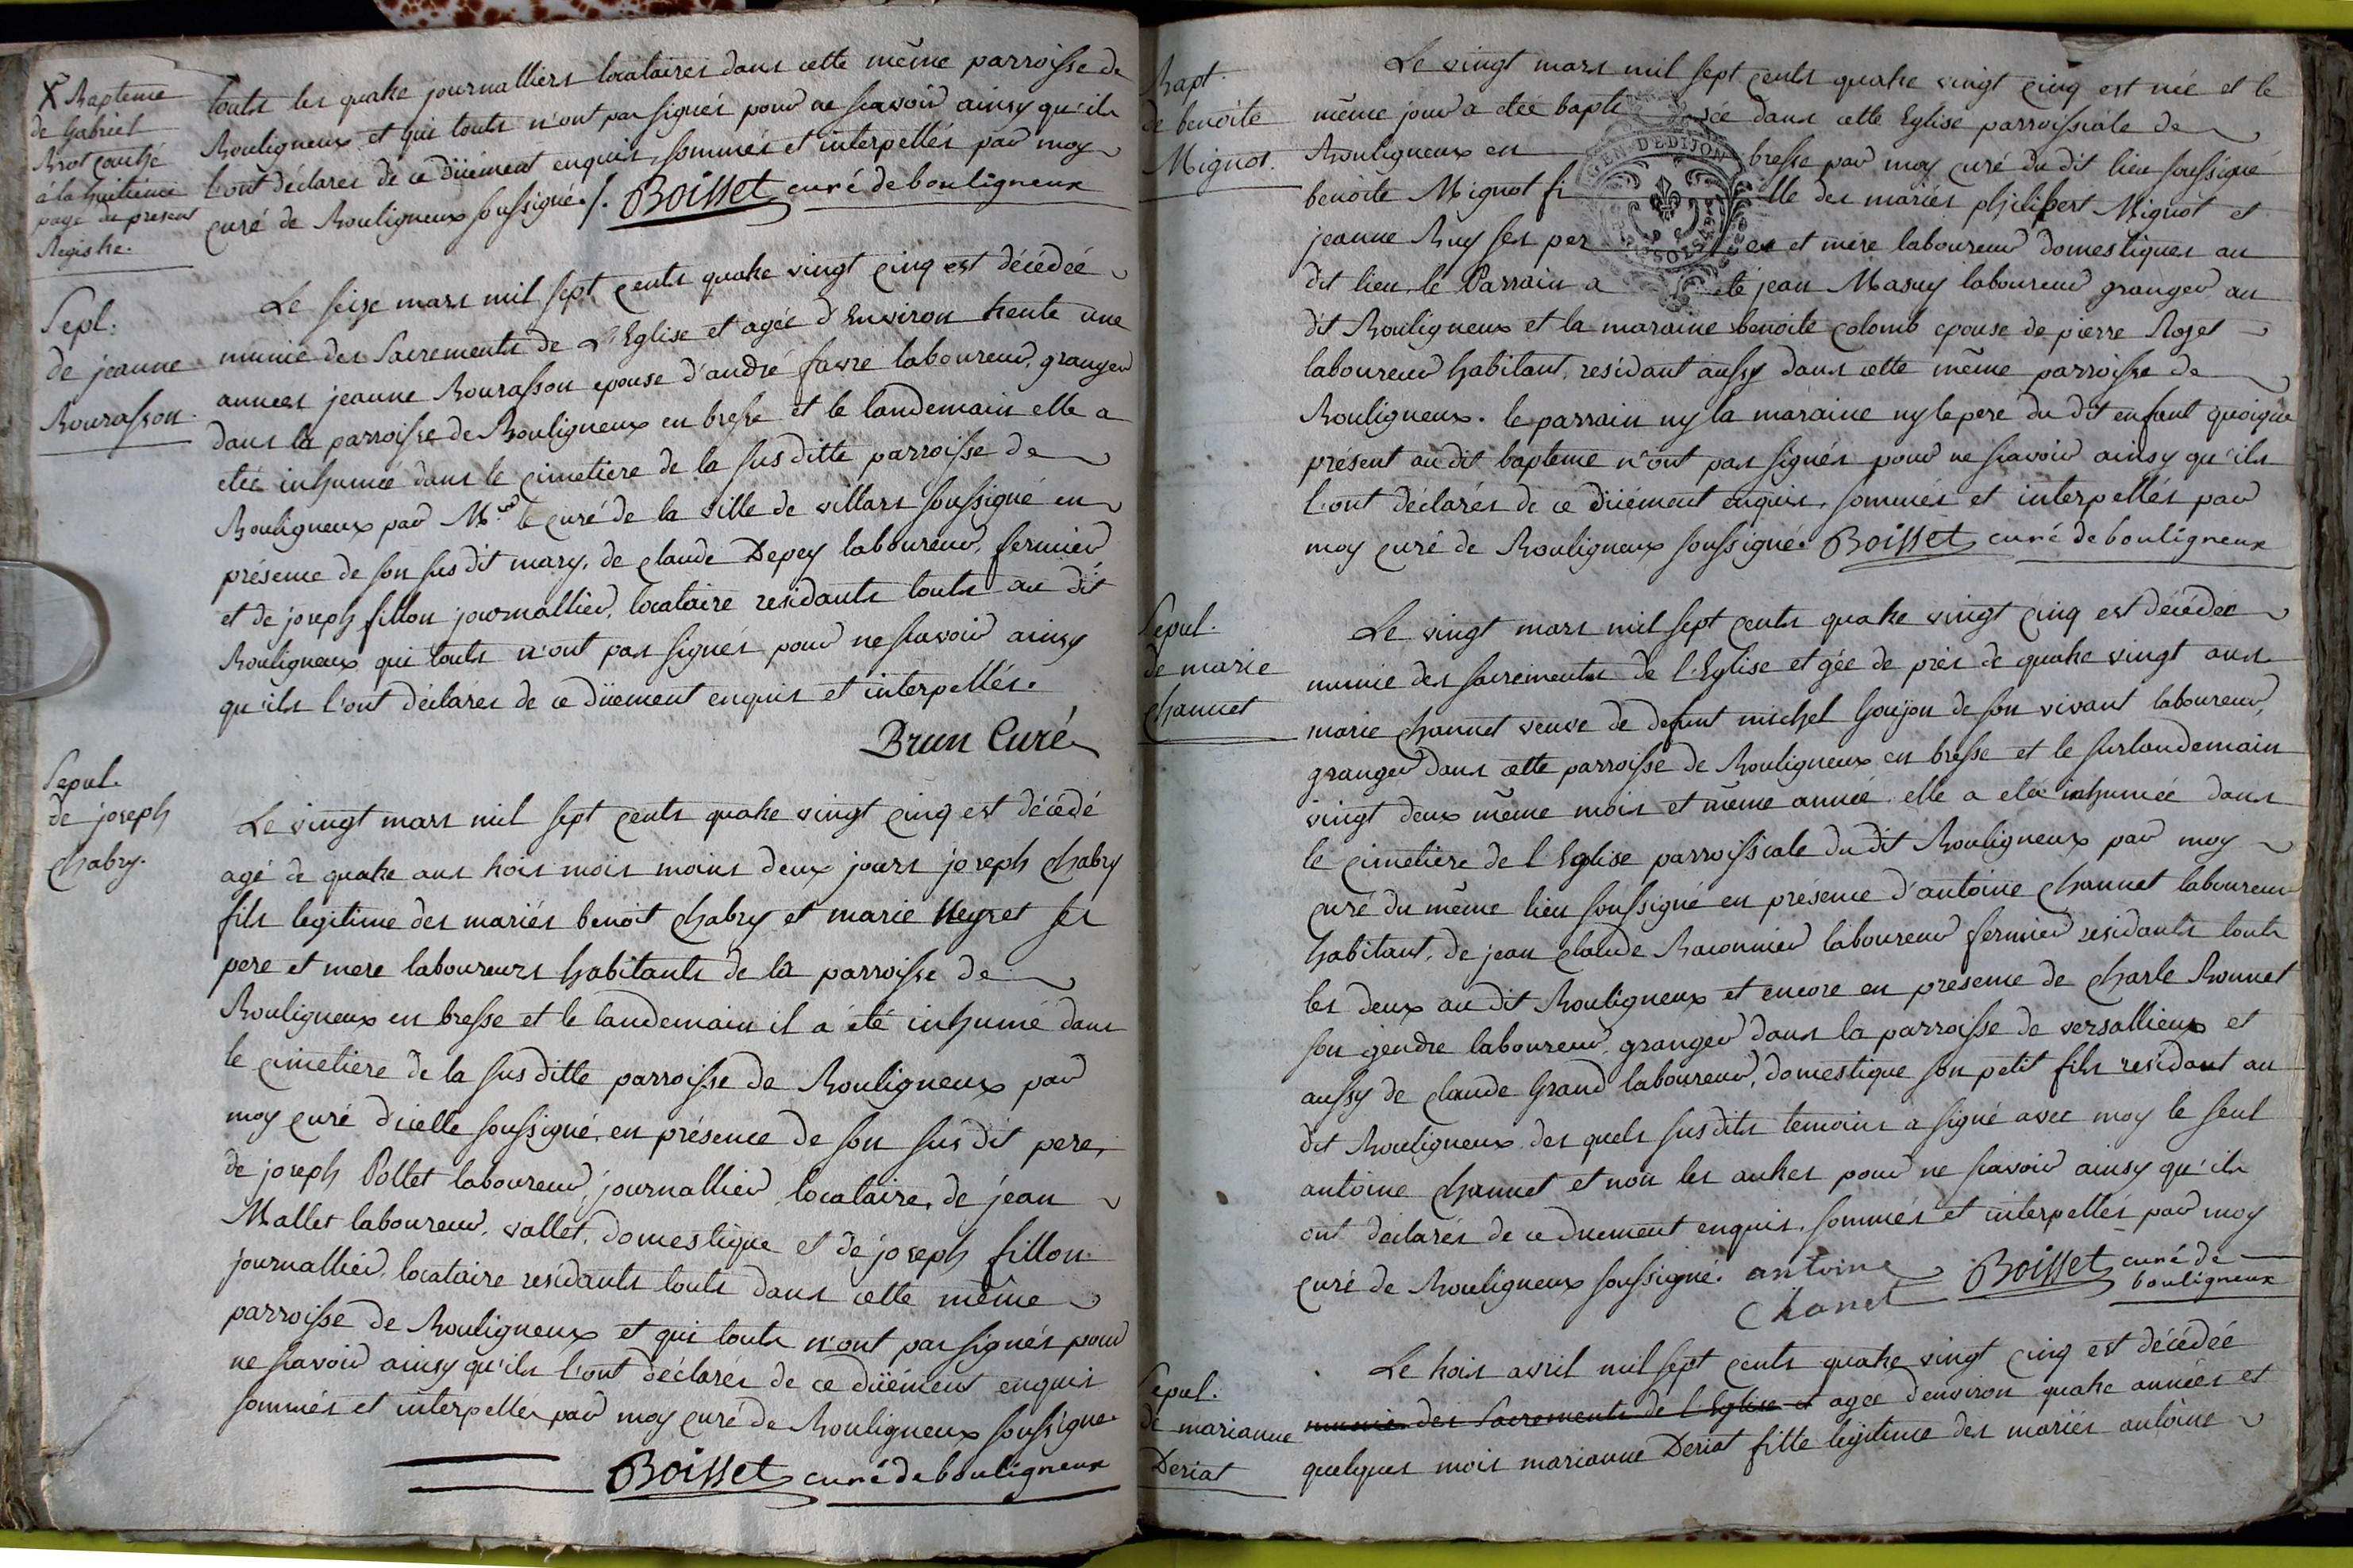 X Bapteme
de Gabriel
Brot couché
à la huitieme
page du present
Registre.
touts les quatre journalliers locataires dans cette même parroisse de
Bouligneux et qui touts n'ont pas signés pour ne scavoir ainsy qu'ils
l'ont déclarés de ce düement enquis, sommés et interpellés par moy
curé de Bouligneux soussigné ./. Boisset curé de bouligneux
Sepl.
de jeanne
Bourasson.
Le seize mars mil sept cents quatre vingt cinq est décédée
munie des sacrements de L'Eglise et agée d'Environ trente une
années jeanne Bourasson epouse d'andré favre laboureur, granger
dans la parroisse de Bouligneux en bresse et le landemain elle a
etée inhumée dans le cimetiere de la susditte parroisse de
Bouligneux par Mr. le curé de la ville de villars soussigné en
présence de son susdit mary, de claude Depey laboureur, fermier
et de joseph fillon journallier, locataire residants touts au dit
Bouligneux qui touts n'ont pas signés pour ne scavoir ainsy
qu'ils l'ont déclarés de ce düement enquis et interpellés.
Brun Curé
Sepul.
de joseph
chabry.
Le vingt mars mil sept cents quatre vingt cinq est décédé
agé de quatre ans trois mois moins deux jours joseph chabry
fils legitime des mariés benoit chabry et marie Neyret ses
pere et mere laboureurs habitants de la parroisse de
Bouligneux en bresse et le landemain il a été inhumé dans
le cimetiere de la susditte parroisse de Bouligneux par
moy curé d'icelle soussigné, en présence de son susdit pere,
de joseph Pollet laboureur, journallier, locataire, de jean
Mallet laboureur, vallet, domestique et de joseph fillon
journallier, locataire residants touts dans cette même
parroisse de Bouligneux et qui touts n'ont pas signés pour
ne scavoir ainsy qu'ils l'ont déclarés de ce düement enquis
sommés et interpellés par moy curé de Bouligneux soussigné.
Boisset curé de bouligneux
Bapt.
de benoite
Mignot.
Le vingt mars mil sept cents quatre vingt cinq est née et le
même jour a etée bapti sée dans cette Eglise parroissiale de
Bouligneux en bresse par moy curé du dit lieu soussigné
benoite Mignot fi lle des mariés philibert Mignot et
jeanne Ruy ses per es et mere laboureur domestiques au
dit lieu, le Parrain a été jean Masuy laboureur granger au
dit Bouligneux et la maraine benoite colomb epouse de pierre Roget
laboureur habitant, residant aussy dans cette même parroisse de
Bouligneux. le parrain ny la maraine ny le pere du dit enfant quoique
présent au dit bapteme n'ont pas signés pour ne scavoir ainsy qu'ils
l'ont déclarés de ce düement enquis, sommés et interpellés par
moy curé de Bouligneux soussigné. Boisset curé de bouligneux
Sepul.
de marie
channet
Le vingt mars mil sept cents quatre vingt cinq est décédée
munie des sacrements de l'Eglise et gée de près de quatre vingt ans
marie channet veuve de defunt michel Goujon de son vivant laboureur,
granger dans cette parroisse de Bouligneux en bresse et le surlandemain
vingt deux même mois et même année elle a eté inhumée dans
le cimetiere de l'Eglise parroissiale du dit Bouligneux par moy
curé du même lieu soussigné en présence d'antoine channet laboureur
habitant, de jean claude Raconnier laboureur fermier residants touts
les deux au dit Bouligneux et encore en presence de charle Bonnet
son gendre laboureur, granger dans la parroisse de versallieux et
aussy de claude Grand laboureur, domestique son petit fils residant au
dit Bouligneux des quels susdits temoins a signé avec moy le seul
antoine channet et non les autres pour ne scavoir ainsy qu'ils
ont declarés de ce duement enquis, sommés et interpellés par moy
curé de Bouligneux soussigné. antoine Boisset curé de
chanet bouligneux
Sepul.
de marianne
Deriat
Le trois avril mil sept cents quatre vingt cinq est décédée
munie des Sacrements de l'Eglise et agée d'environ quatre années et
quelques mois marianne Deriat fille legitime des mariés antoine